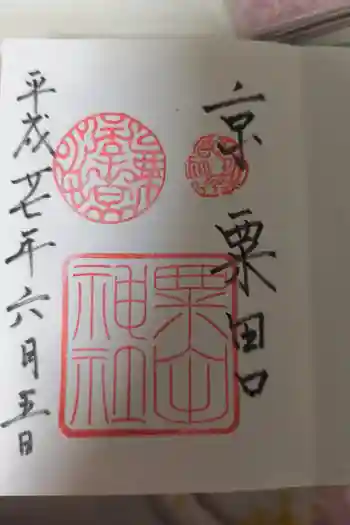 京 粟田口
粟田
神社
平成廿七年六月五日